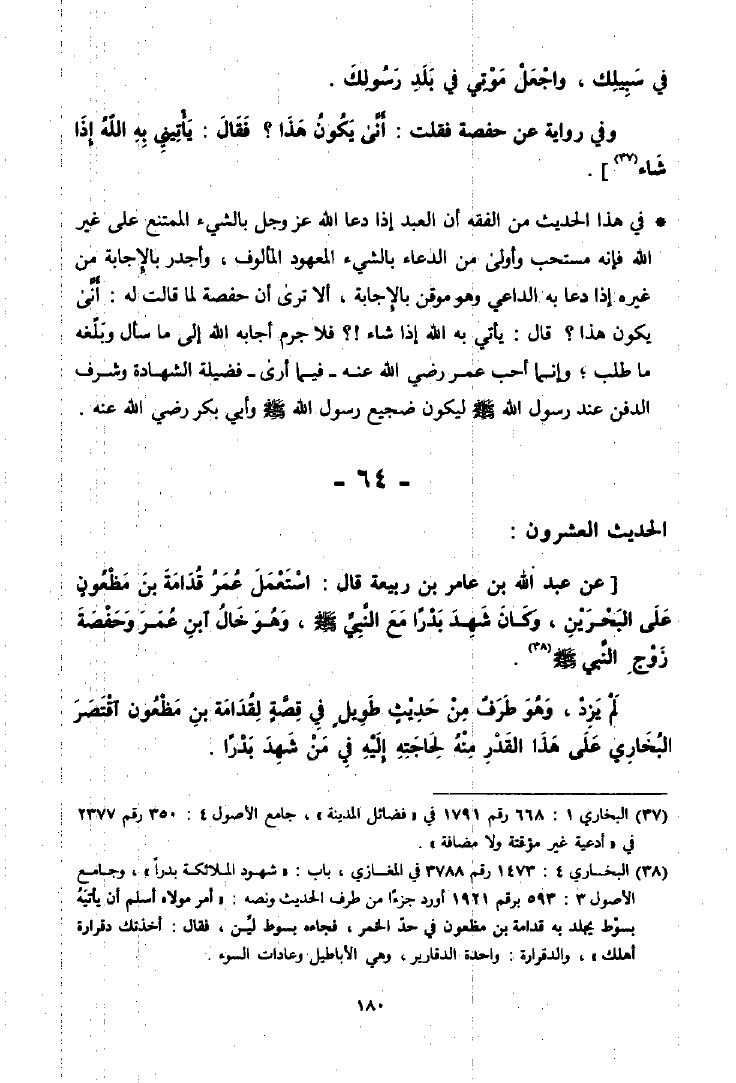 في سَبِيلِك ، واجْعَلْ مَوْتِي في بَلَدِ رَسُولِكَ .
وفي رواية عن حفصة فقلت : أَنَّىٰ يَكُونُ هَذَا ؟ فَقَالَ : يَأْتِينِي بِهِ اللّهُ إِذَا
شَاء (٣٧) ] .
* في هذا الحديث من الفقه أن العبد إذا دعا الله عز وجل بالشيء الممتنع على غير
الله فإنه مستحب وأولىٰ من الدعاء بالشيء المعهود المألوف ، وأجدر بالإجابة من
غيره إذا دعا به الداعي وهو موقن بالإجابة ، ألا ترىٰ أن حفصة لما قالت له : أَنَّىٰ
يكون هذا ؟ قال : يأتي به الله إذا شاء !؟ فلا جرم أجابه الله إلى ما سأل وبَلَّغه
ما طلب ؛ وإنما أحب عمر رضي الله عنه ـ فيما أرىٰ ـ فضيلة الشهادة وشرف
الدفن عند رسول الله ﷺ ليكون ضجيع رسول الله ﷺ وأبي بكر رضي الله عنه .
ـ ٦٤ ـ
الحديث العشرون :
[ عن عبد الله بن عامر بن ربيعة قال : اسْتَعْمَلَ عُمَرُ قُدَامَةَ بنَ مَظْعُونٍ
عَلَى البَحْرَيْنِ ، وَكَانَ شَهِدَ بَدْرًا مَعَ النَّبِيِّ ﷺ ، وَهُوَ خَالُ آبنِ عُمَرَ وَحَفْصَةَ
زَوْجِ النَّبِي ﷺ (٣٨) .
لَمْ يَزِدْ ، وَهُوَ طَرَفٌ مِنْ حَدِيْثٍ طَوِيلٍ فِي قِصَّةٍ لِقُدَامَة بنِ مَظْعُون آقْتَصَرَ
البُخَارِي عَلَى هَذَا القَدْرِ مِنْهُ لِحَاجَتِهِ إِلَيْهِ فِي مَنْ شَهِدَ بَدْرًا .
(٣٧) البخاري ١ : ٦٦٨ رقم ١٧٩١ في « فضائل المدينة » ، جامع الأصول ٤ : ٣٥٠ رقم ٢٣٧٧
في « أدعية غير مؤقتة ولا مضافة » .
(٣٨) البخاري ٤ : ١٤٧٣ رقم ٣٧٨٨ في المغازي ، باب : « شهود الملائكة بدراً » ، وجامع
الأصول ٣ : ٥٩٣ برقم ١٩٢١ أورد جزءًا من طرف الحديث ونصه : « أمر مولاه أسلم أن يأتيَهُ
بسوْط يجلد به قدامة بن مظعون في حدّ الخمر ، فجاءه بسوط لَيِّن ، فقال : أخذتك دقرارة
أهلك » ، والدقرارة : واحدة الدقارير ، وهي الأباطيل وعادات السوء .
١٨٠